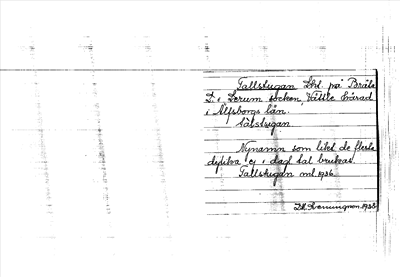 Tallstugan Lht på Bråta
I. i Lerum socken, Vättle härad
i Älfsborgs län.
tålstugan
Nynamn som likt de flesta
dylika ej i dagl. tal brukas.
Tallstugan ml. 1936.
1935